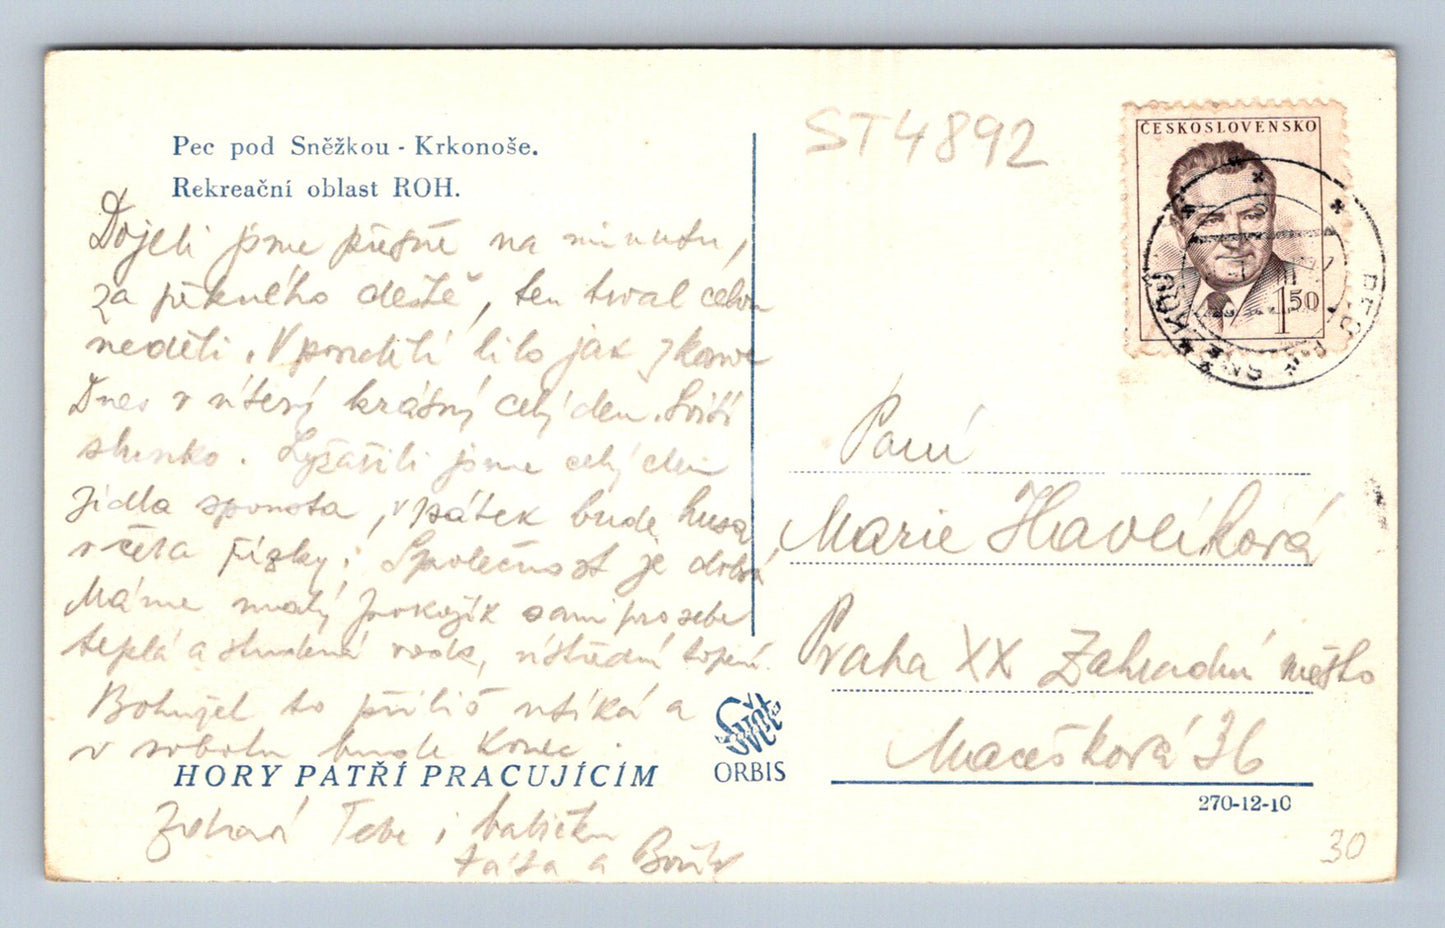 Pec pod Sněžkou - Krkonoše.
Rekreační oblast ROH.
Dojeli jsme přesně na minutu,
za pěkného deště, ten trval celou
neděli. V pondělí lilo jak z konve
Dnes v úterý krásný celý den. Svítí
slunko. Lyžařili jsme celý den
Jídla spousta, v pátek bude husa
včera řízky. Společnost je dobrá
Máme malý pokojík sami pro sebe
teplá a studená voda, ústřední topení.
Bohužel to příliš utíká a
v sobotu bude konec.
HORY PATŘÍ PRACUJÍCÍM
Zdraví Tebe i babičku
táta a
ST4892
ČESKOSLOVENSKO
1 50
Paní
Marie Havlíková
Praha XX Zahradní město
Macešková 36
Svět
ORBIS
270-12-10
30